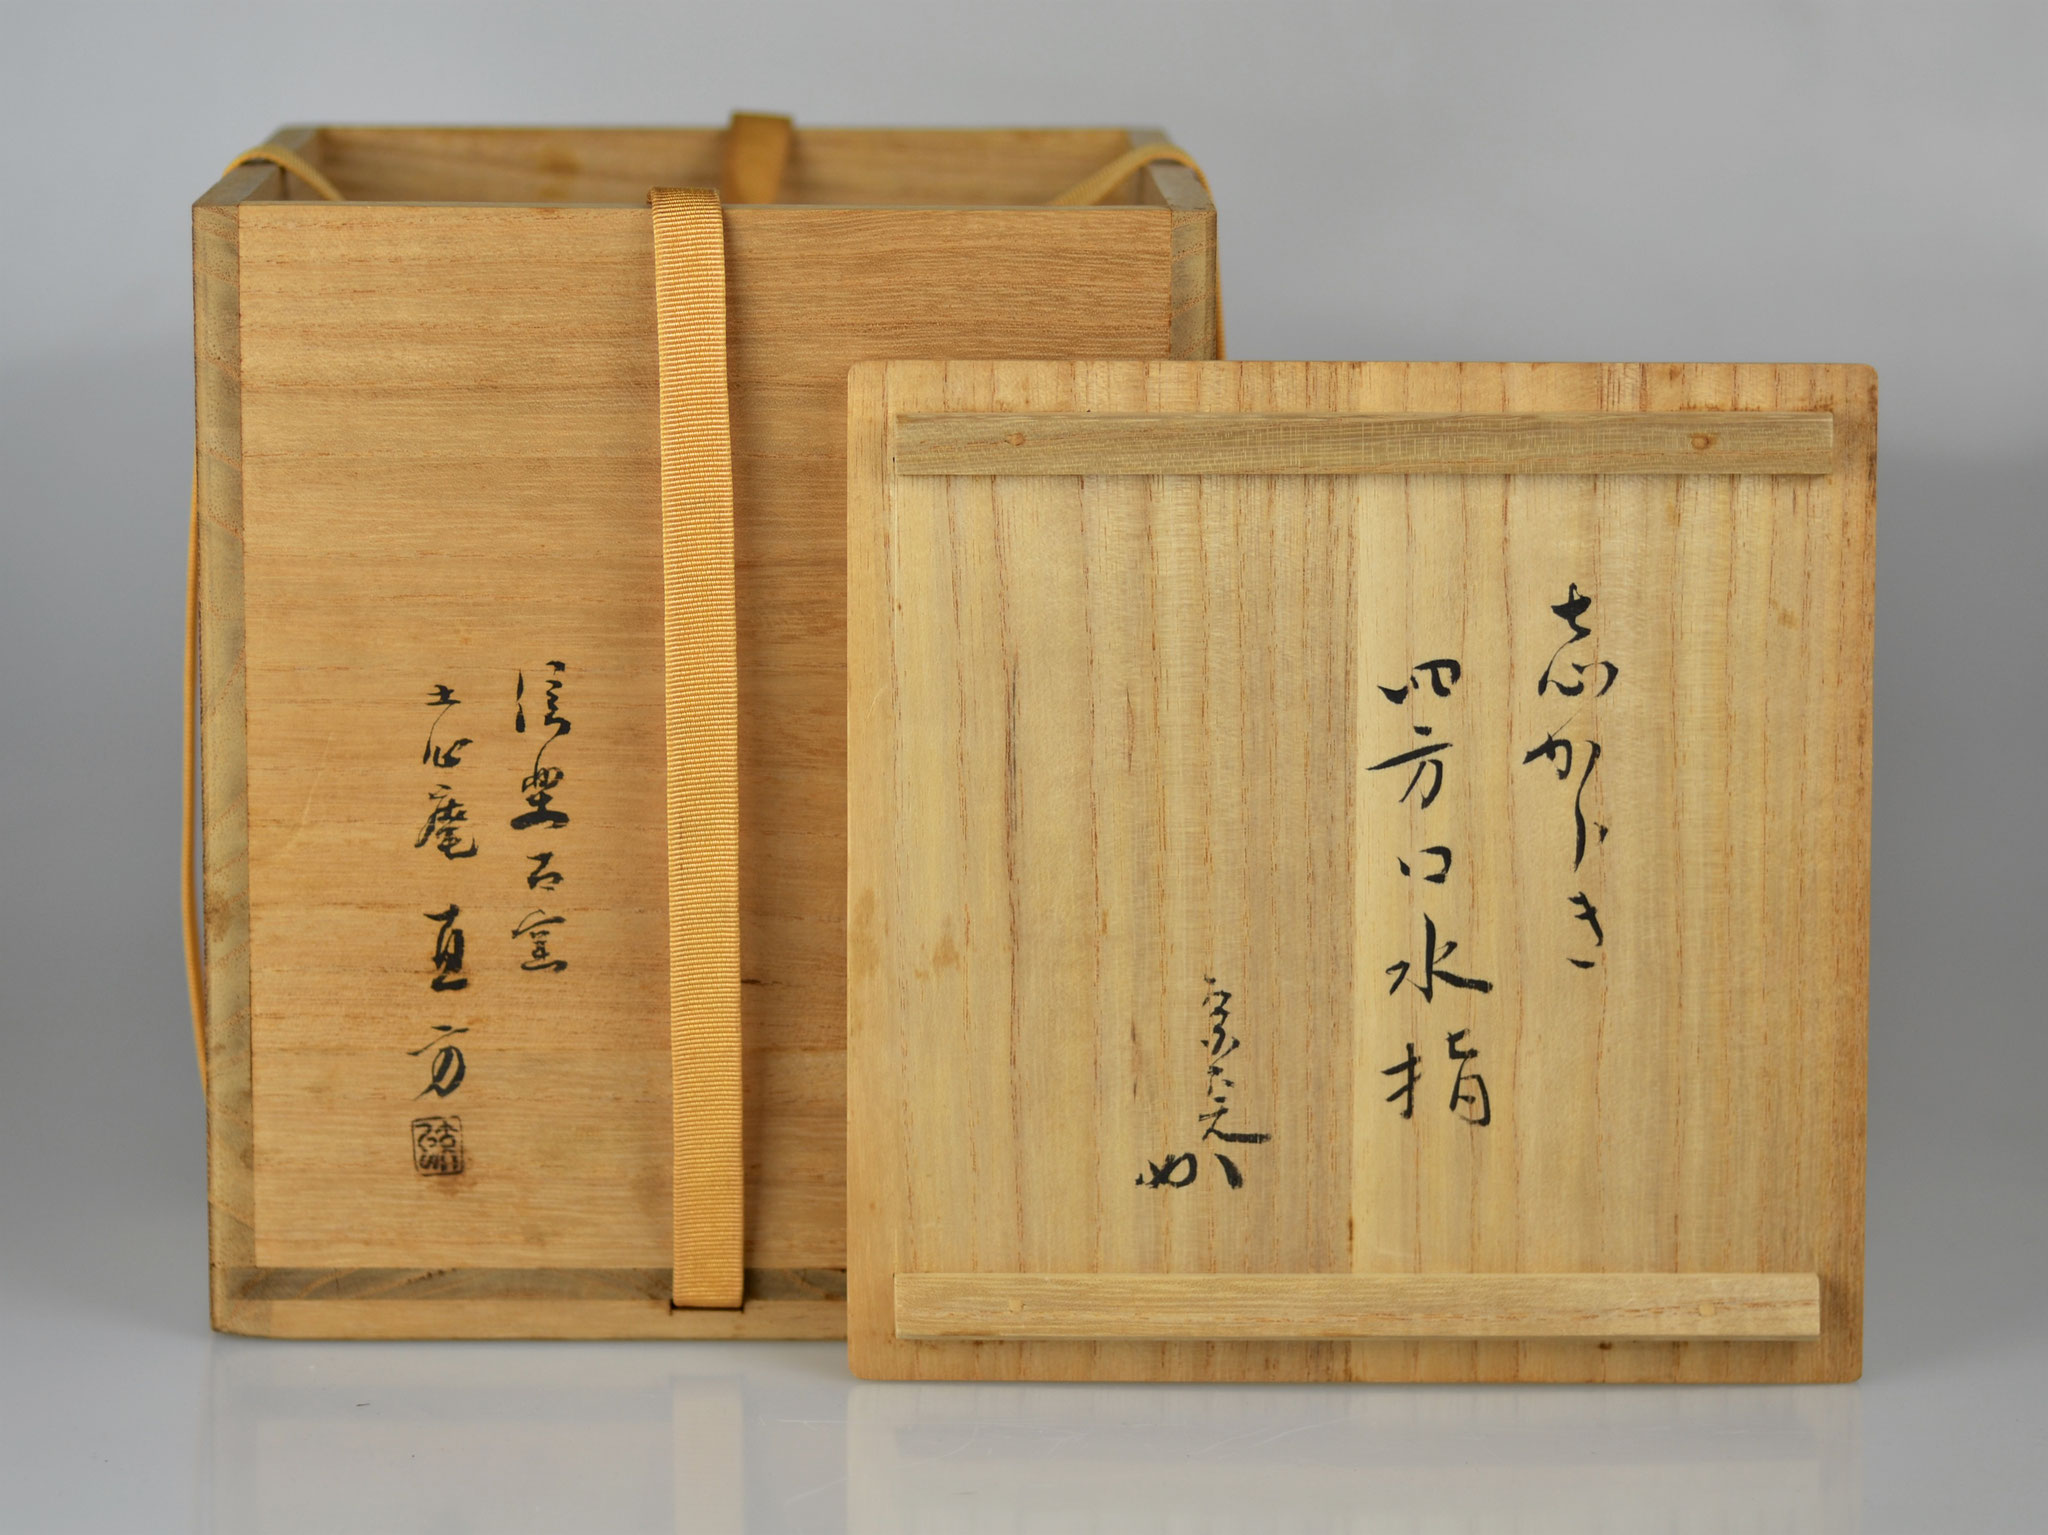 志からき
四方口水指
信楽古窯
土心庵直方